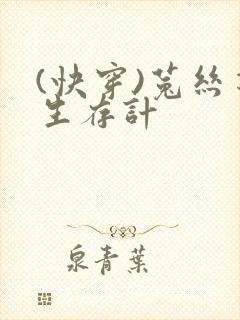 (快穿)菟絲
生存計
泉青葉